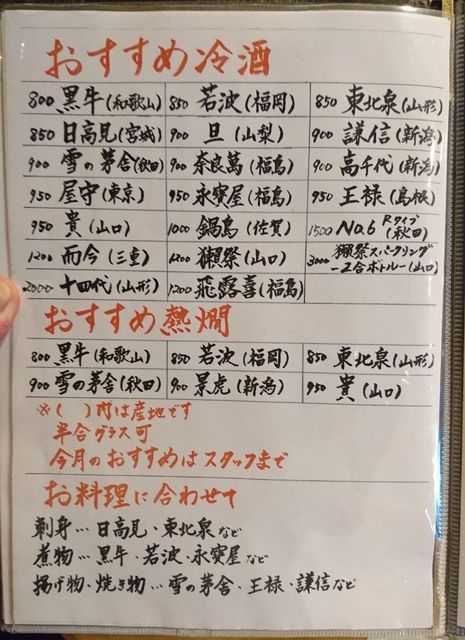 おすすめ冷酒
800 黒牛(和歌山) 850 若波(福岡) 850 東北泉(山形)
850 日高見(宮城) 900 旦(山梨) 900 謙信(新潟)
900 雪の茅舎(秋田) 900 奈良萬(福島) 900 高千代(新潟)
950 屋守(東京) 950 永寶屋(福島) 950 王禄(島根)
950 貴(山口) 1000 鍋島(佐賀) 1500 No.6 Rタイプ(秋田)
1200 而今(三重) 1200 獺祭(山口) 3000 獺祭スパークリング
ー2合ボトルー(山口)
2000 十四代(山形) 1200 飛露喜(福島)
おすすめ熱燗
800 黒牛(和歌山) 850 若波(福岡) 850 東北泉(山形)
900 雪の茅舎(秋田) 900 景虎(新潟) 950 貴(山口)
※( )内は産地です
半合グラス可
今月のおすすめはスタッフまで
お料理に合わせて
刺身…日高見・東北泉など
煮物…黒牛・若波・永寶屋など
揚げ物・焼き物…雪の茅舎・王禄・謙信など